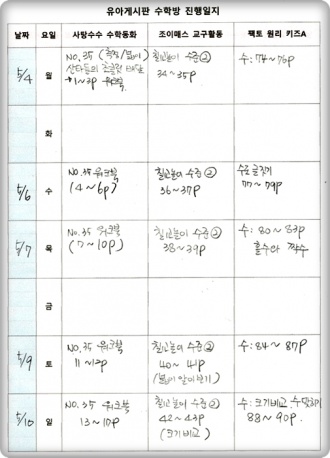 유아게시판 수학방 진행일지
날짜 요일 사탕수수 수학동화 조이매스 교구활동 팩토 원리 키즈A
5/4 월 No.35 (측정/넓이) 칠교놀이 수준② 수: 74~76p
산타들의 초콜릿 34~35p
+1~3p 워크북
화
5/6 수 No.35 워크북 칠교놀이 수준② 수로 긋기
(4~6p) 36~37p 77~79p
5/7 목 No.35 워크북 칠교놀이 수준② 수: 80~83p
(7~10p) 38~39p 홀수와 짝수
금
5/9 토 No.35 워크북 칠교놀이 수준② 수: 84~87p
11~12p 40~41p
(넓이 알아보기)
5/10 일 No.35 워크북 칠교놀이 수준② 수: 크기비교,
13~17p 42~43p 88~90p.
(크기비교)